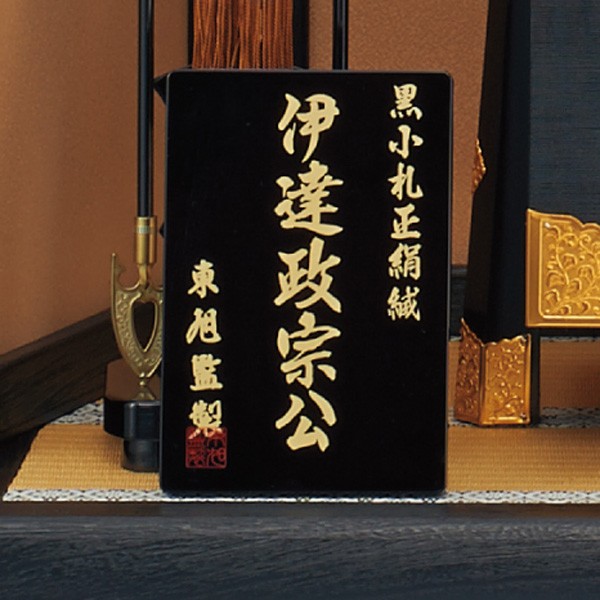 黒小札正絹縅
伊達政宗公
東旭監製